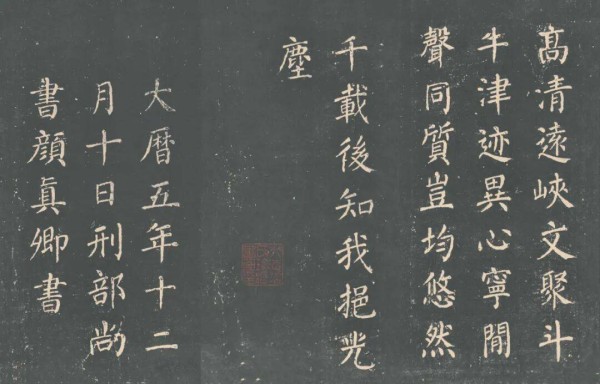 高清遠峽文聚斗
牛津迹異心寧閒
聲同質豈均悠然
千載後知我挹光
塵
大曆五年十二
月十日刑部尚
書顔真卿書